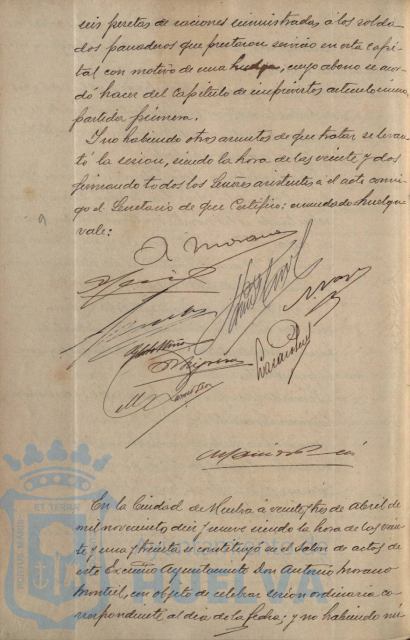 seis pesetas de raciones suministradas á los solda-
dos panaderos que prestaron servicio en esta capi-
tal con motivo de una huelga, cuyo abono se acor-
dó hacer del Capítulo de imprevistos artículo único
partida primera.
Y no habiendo otros asuntos de que tratar se levan-
tó la sesion, siendo la hora de las veinte y dos
firmando todos los Señores asistentes á el acto conmi-
go el Secretario de que Certifico: enmendado huelga
vale:
A Moreno
En la Ciudad de Huelva á veinte y tres de Abril de
mil novecientos diez y nueve siendo la hora de las vein-
te y una y treinta se constituyó en el Salon de actos de
este Excmo Ayuntamiento Don Antonio Moreno
Montiel, con objeto de celebrar sesion ordinaria co-
rrespondiente al dia de la fecha; y no habiendo nú
PORTUS MARIS
ET TERRAE
HUELVA